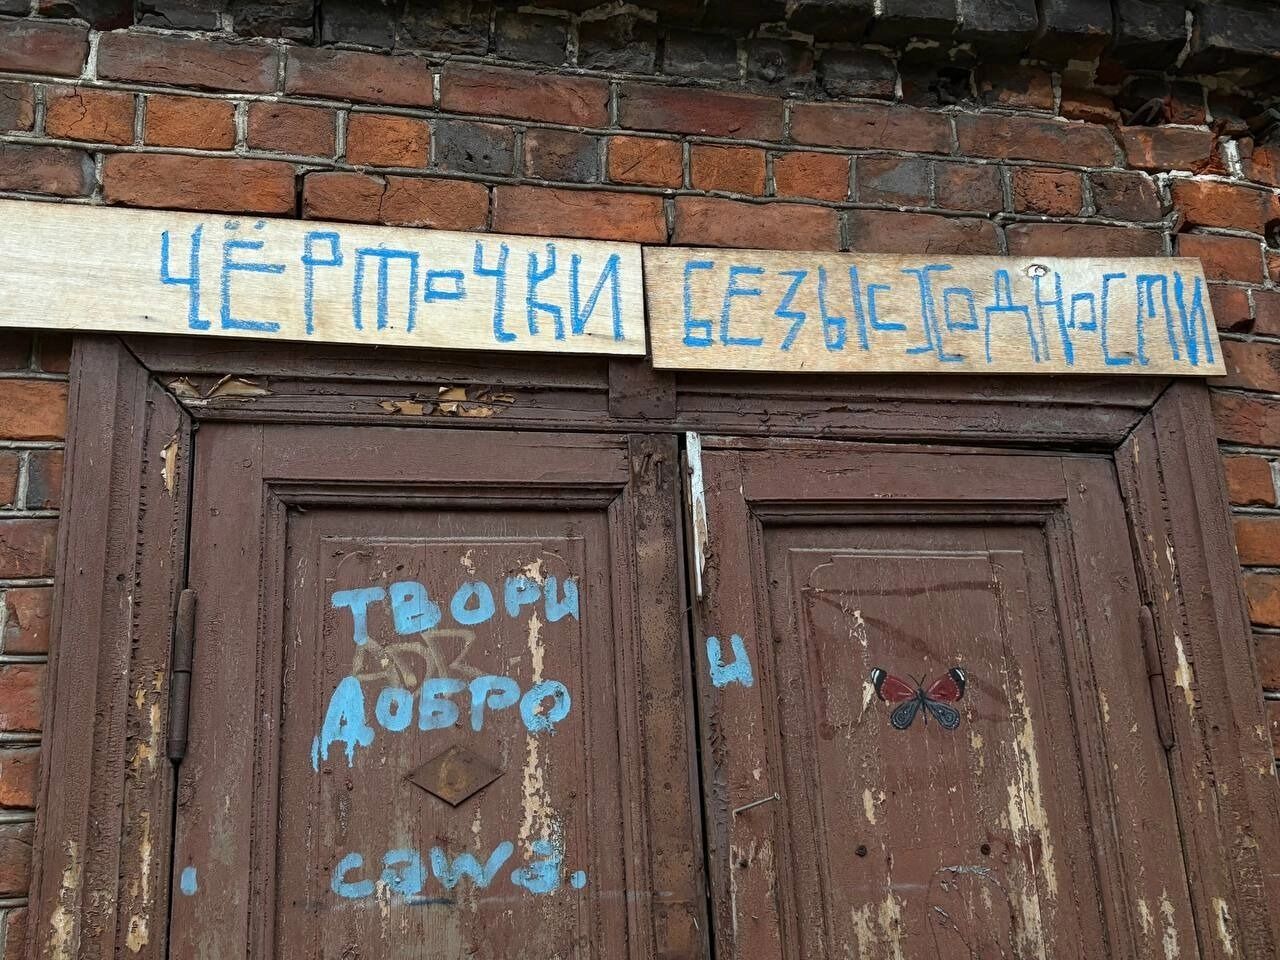 ЧЁРТОЧКИ БЕЗЫСХОДНОСТИ
ТВОРИ
И
ДОБРО
саша.